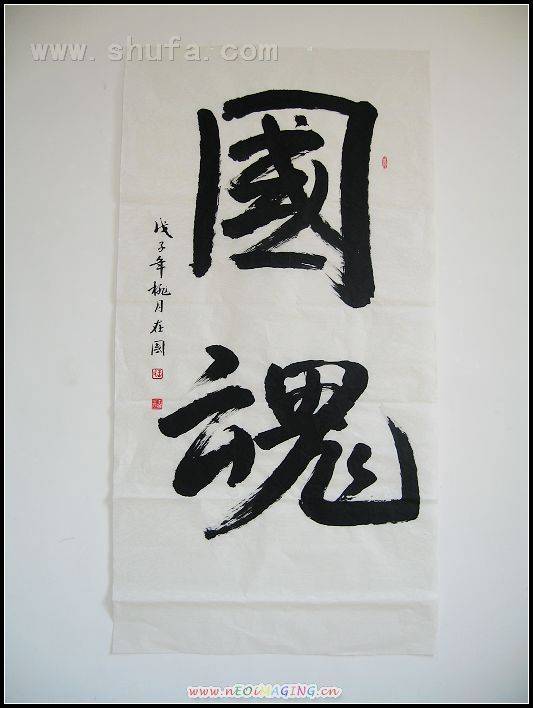 www.shufa.com
國魂
戊子年桃月在國
www.nEOiMAGiNG.cn